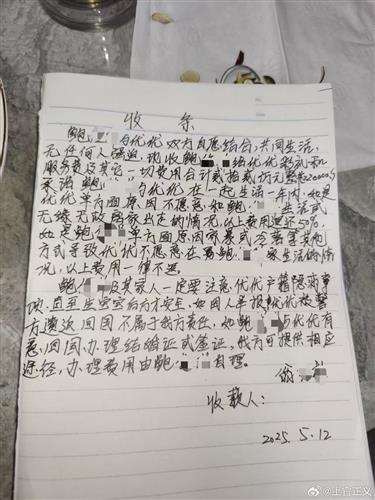 收条
鲍 为优优双方自愿结合,共同生活,
无任何人强迫,现收鲍 给优优彩礼和
服务费及其它一切费用合计贰拾贰万元整220000元
承诺鲍 为优优在一起生活一年内,如果
优优单方面原因不愿意和鲍 生活或
无缘无故离家出走的情况,以上费用退还50%,
如是鲍 单方面原因家暴或冷暴等其他
方式导致优优不愿意在鲍 家生活的情
况,以上费用一律不退。
鲍 及其家人一定要注意优优户籍隐瞒事
项,直至生完宝宝后方才安全,如因人举报优优被警
方遣返回国不属于我方责任,如鲍 与优优有
意回国办理结婚证或签证,我方可提供相应
途径,办理费用由鲍 自理。
收款人:
2025.5.12
@上官正义